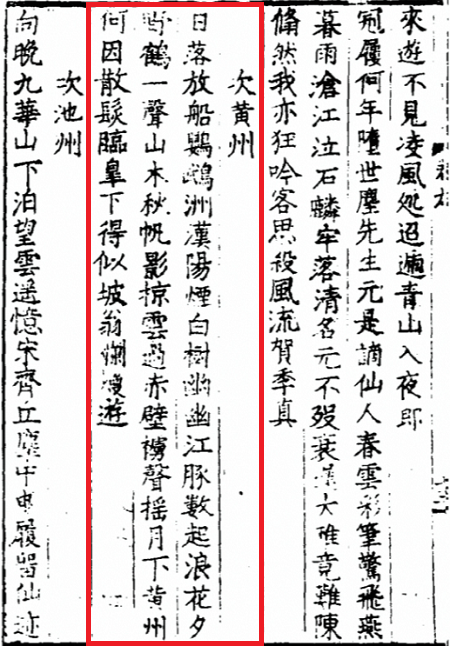 來遊不見凌風処迢遞青山入夜郎
冠履何年墮世塵先生元是謫仙人春雲彩筆驚飛燕
暮雨滄江泣石麟牢落清名元不歿衰大雅竟難陳
翛然我亦狂吟客思殺風流賀季真
次黄州
日落放船鸚鵡洲漢陽煙白樹幽幽江豚數起浪花夕
野鶴一聲山木秋帆影掠雲過赤壁櫓聲搖月下黄州
何因散髮臨皐下得似坡翁爛熳遊
次池州
向晚九華山下泊望雲遥憶宋齊丘塵中曳履留仙迹